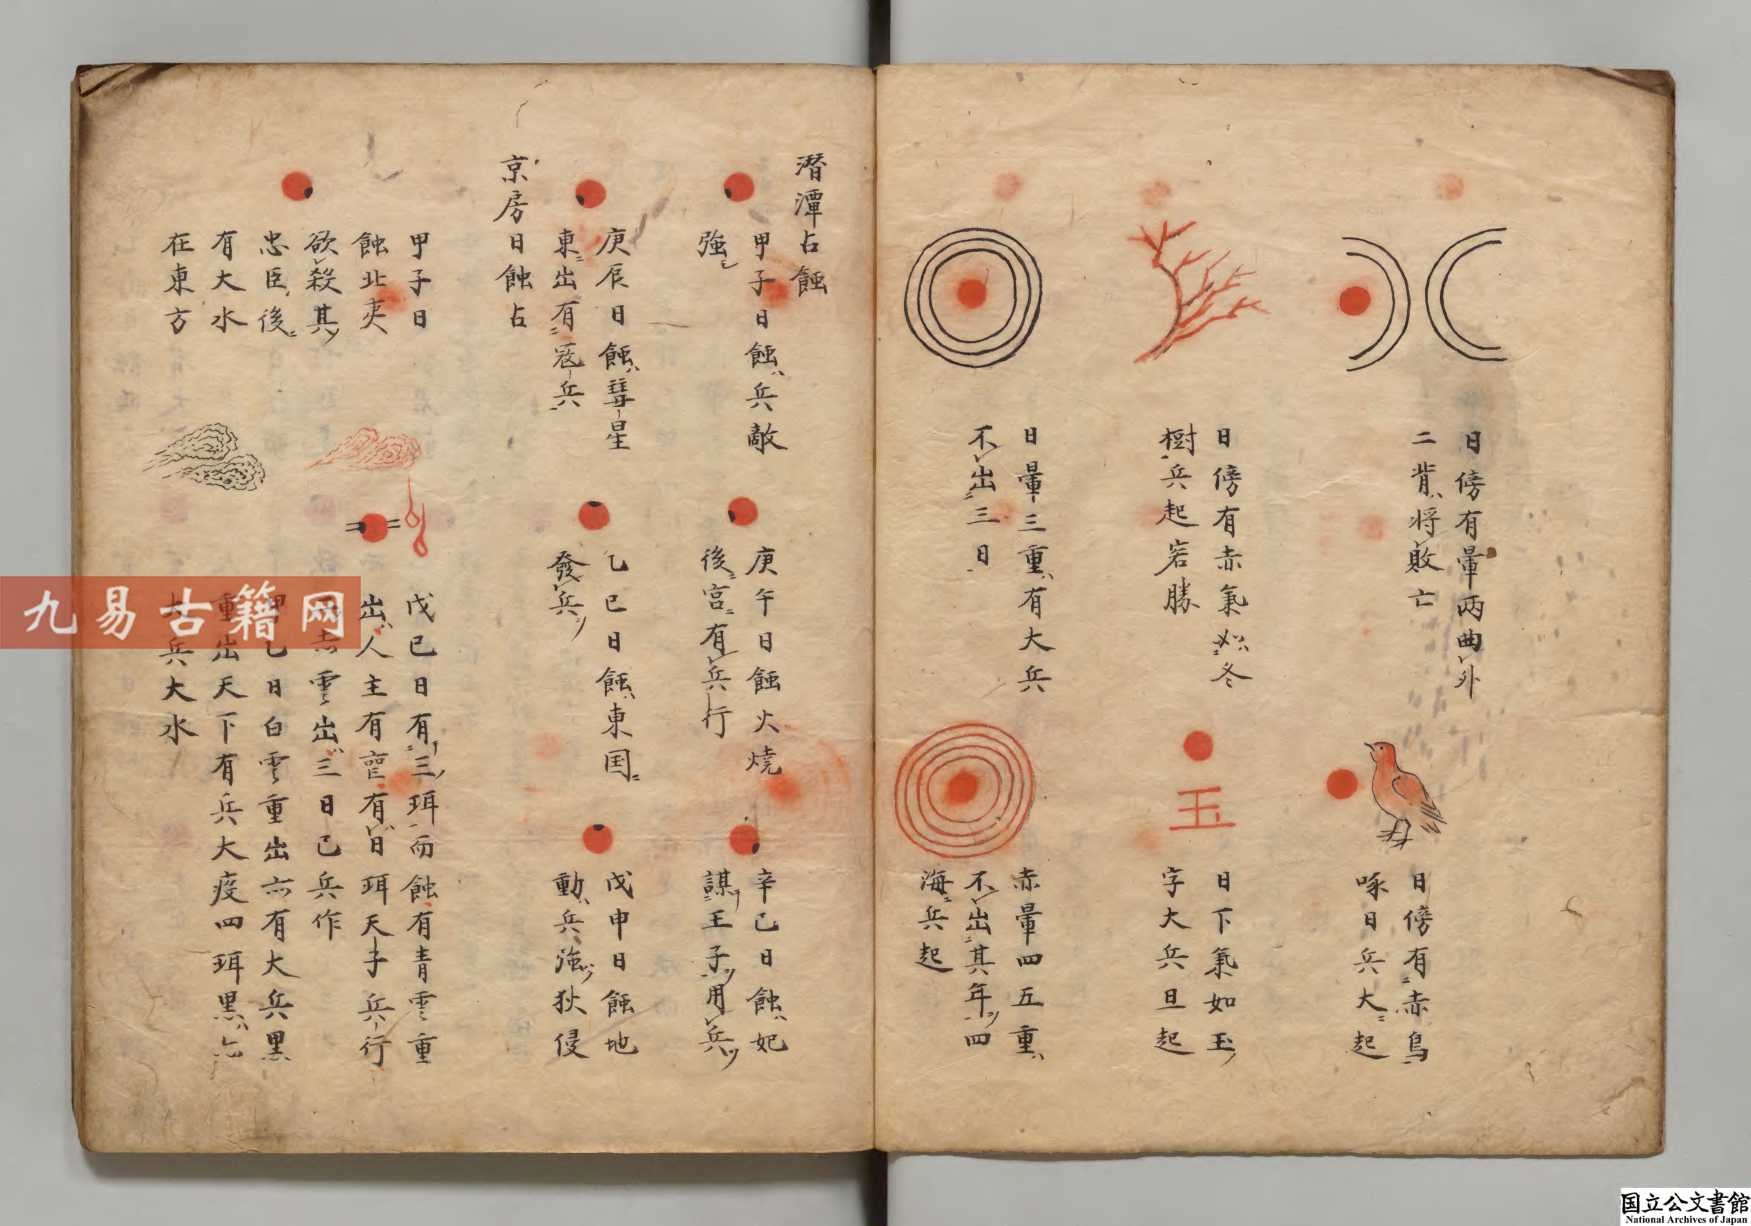 日傍有暈两曲外
二背将敗亡
日傍有赤烏
啄日兵大起
日傍有赤氣如冬
樹兵起宕勝
日下氣如玉
字大兵旦起
玉
日暈三重有大兵
不出三日
赤暈四五重
不出其年四
海兵起
潜潭占蝕
甲子日蝕兵敵
強
庚午日蝕火燒
後宮有兵行
辛巳日蝕妃
謀王子用兵
庚辰日蝕彗星
東出有寇兵
乙巳日蝕東国
發兵
戊申日蝕地
動兵強狄侵
京房日蝕占
甲子日
蝕北夷
欲殺其
忠臣後
有大水
在東方
戊巳日有三珥而蝕有青雲重
出人主有 有日珥天子兵行
赤雲出三日已兵作
乙日白雲重出亦有大兵黒
重出天下有兵大疫四珥黒亦
大兵大水
九易古籍网
国立公文書館
National Archives of Japan